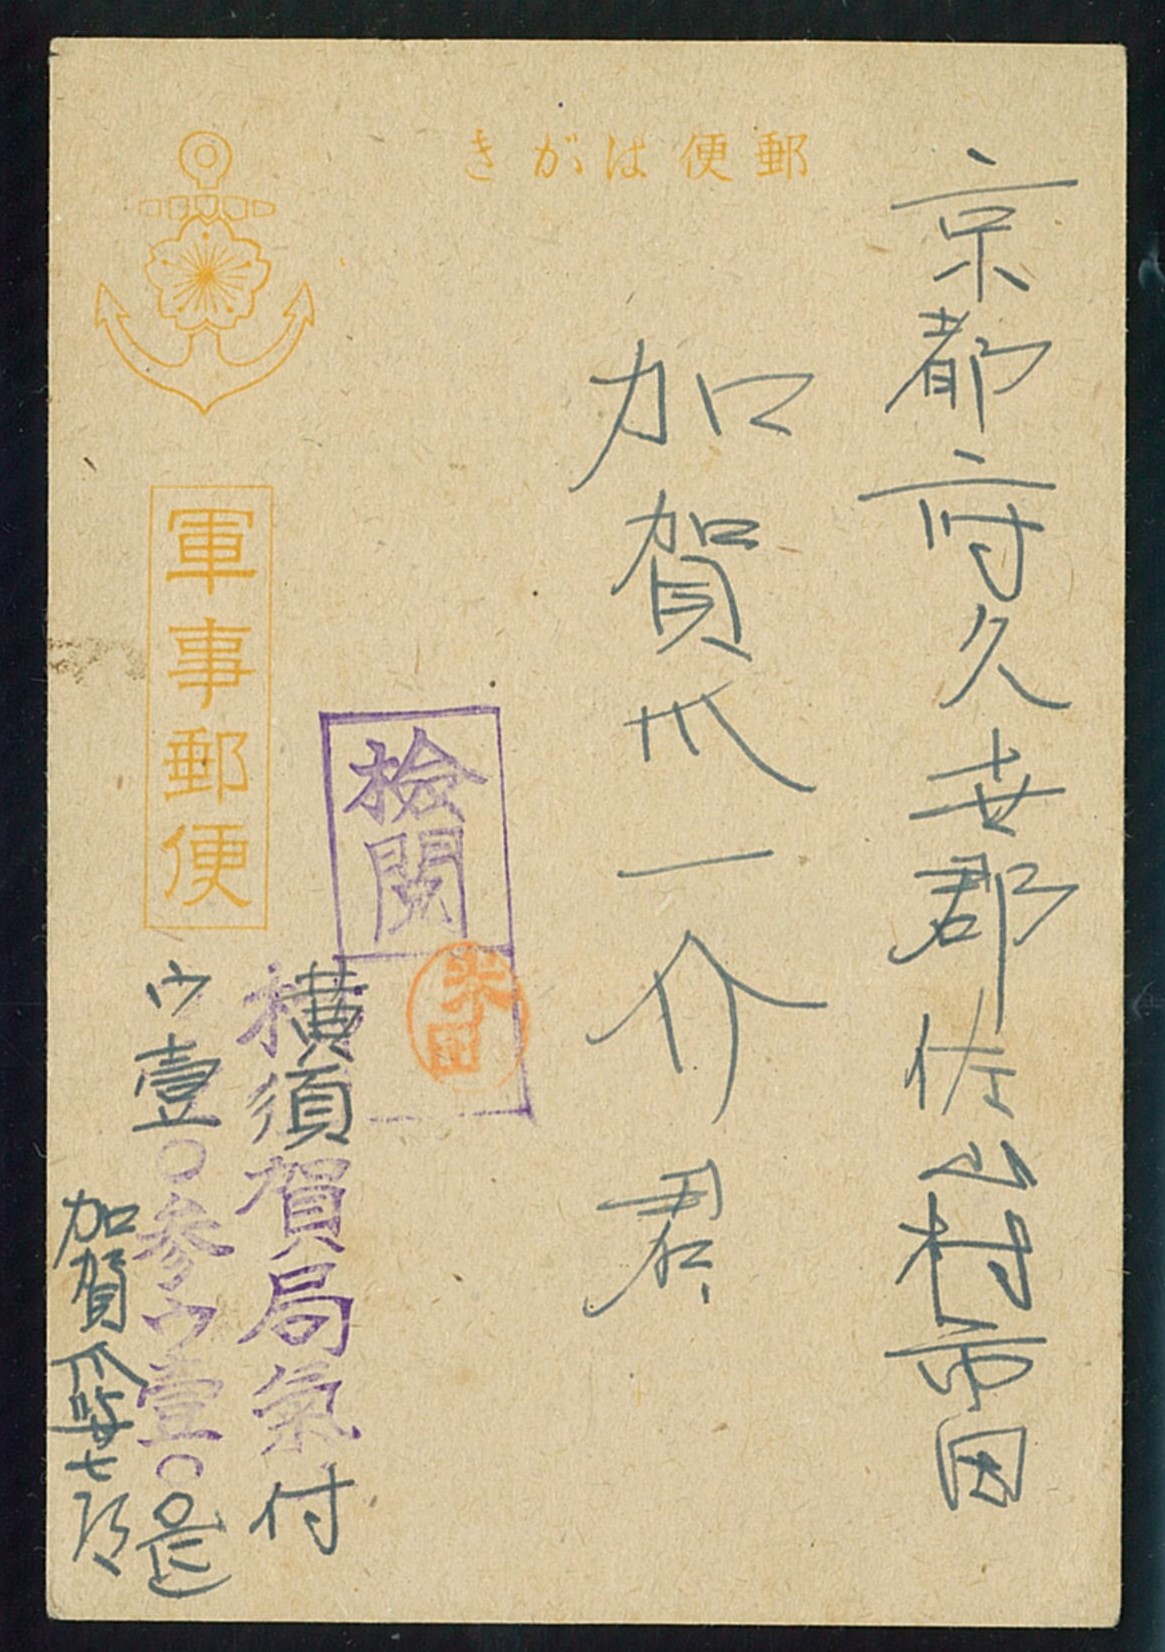 郵便はがき
京都府久世郡佐山村市田
加賀爪一介君
軍事郵便
検閲
米田
横須賀局気付
ウ壹〇参ウ壹〇
加賀爪
七郎